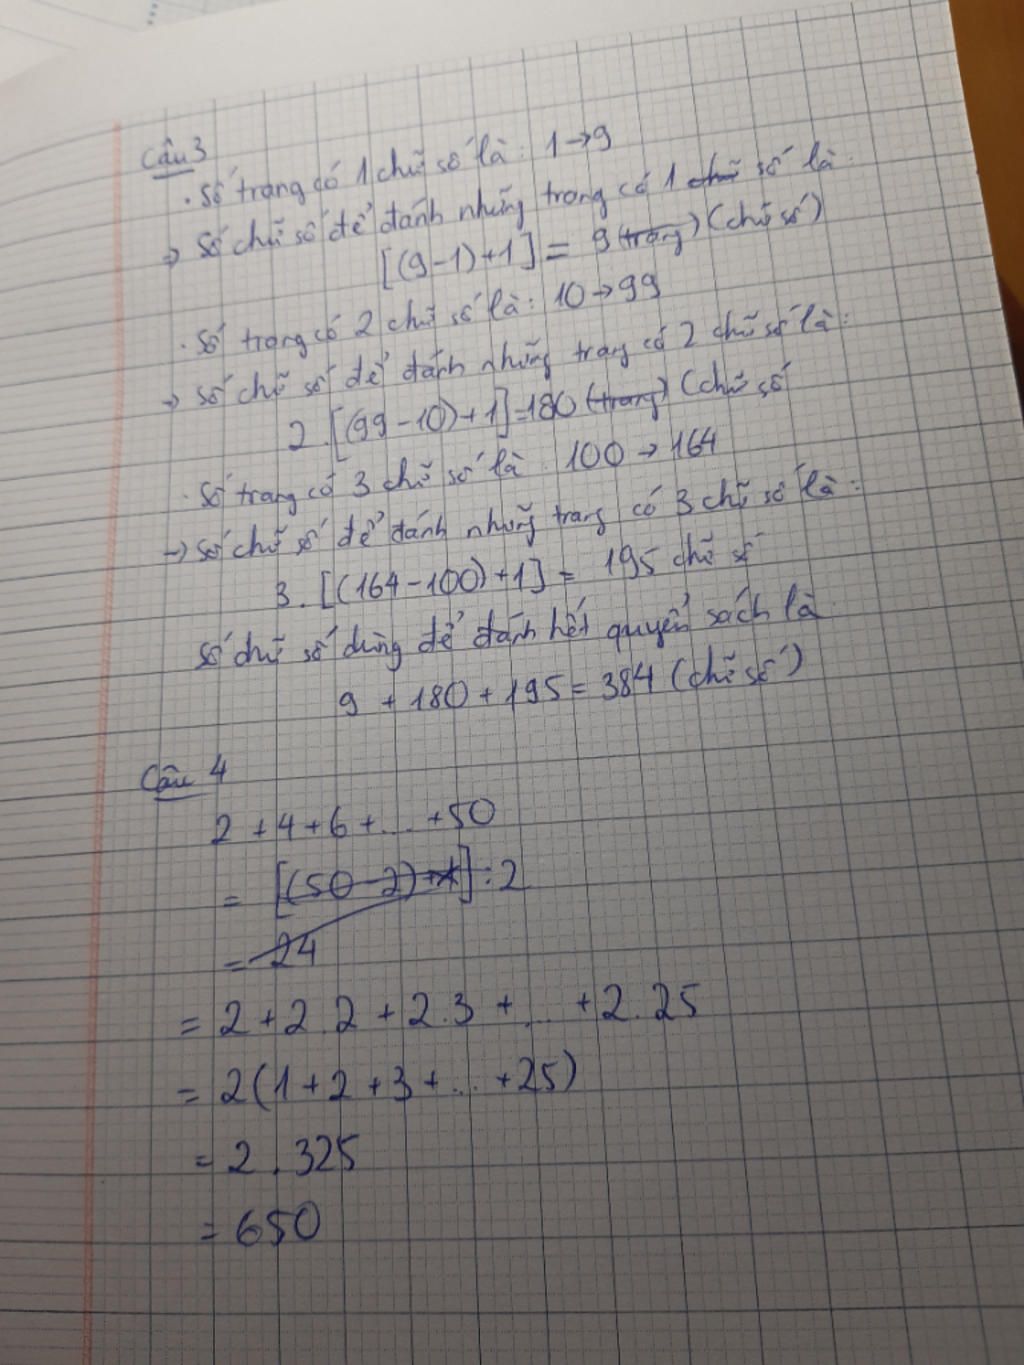 Câu 3
. Số trang có 1 chữ số là : 1 → 9
→ Số chữ số để đánh những trang có 1 chữ số là :
[(9 - 1) + 1] = 9 (trang) (chữ số)
. Số trang có 2 chữ số là : 10 → 99
→ Số chữ số để đánh những trang có 2 chữ số là :
2 . [(99 - 10) + 1] = 180 (trang) (chữ số
. Số trang có 3 chữ số là 100 → 164
→ Số chữ số để đánh những trang có 3 chữ số là :
3 . [(164 - 100) + 1] = 195 chữ số
Số chữ số dùng để đánh hết quyển sách là
9 + 180 + 195 = 384 (chữ số)
Câu 4
2 + 4 + 6 + ... + 50
= [(50 - 2) + 1] : 2
= 24
= 2 + 2.2 + 2.3 + ... + 2.25
= 2(1 + 2 + 3 + ... + 25)
= 2 . 325
= 650